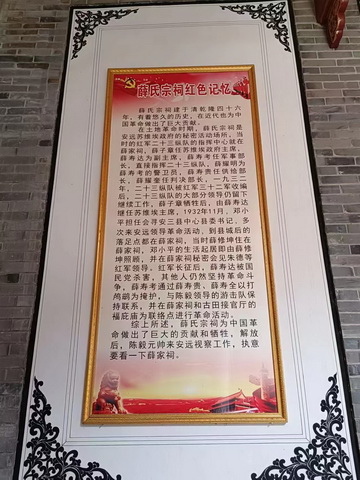 薛氏宗祠红色记忆
薛氏宗祠建于清乾隆四十六
年，有着悠久的历史，在近代也为中
国革命做出了巨大贡献。
在土地革命时期，薛氏宗祠是
安远苏维埃政府的秘密活动场所，当
时的红军二十三纵队的指挥中心就在
薛家祠，薛子章任苏维埃政府主席，
薛寿达为副主席，薛寿考任军事部
长，直接指挥二十三纵队，薛耀明为
薛寿考的警卫员，薛寿贵任供给部
长，薛耀奎任判决部长，一九三二
年，二十三纵队被红军三十二军收编
后，二十三纵队的大部分领导仍留下
继续工作，薛子章牺牲后，由薛寿达
继任苏维埃主席，1932年11月，邓小
平担任会寻安三县中心县委书记，多
次来安远领导革命活动，到县城后的
落足点都在薛家祠，当时薛修坤住在
薛家祠，邓小平的生活起居即由薛修
坤照顾，并在薛家祠秘密会见朱德等
红军领导，红军长征后，薛寿达被国
民党杀害，其他人仍然坚持革命斗
争，薛寿考通过薛寿贵、薛寿全以打
鸬鹚为掩护，与陈毅领导的游击队保
持联系，并在薛家祠和古田接官厅的
福庇庙为联络点进行革命活动。
综上所述，薛氏宗祠为中国革
命做出了巨大的贡献和牺牲，解放
后，陈毅元帅来安远视察工作，执意
要看一下薛家祠。